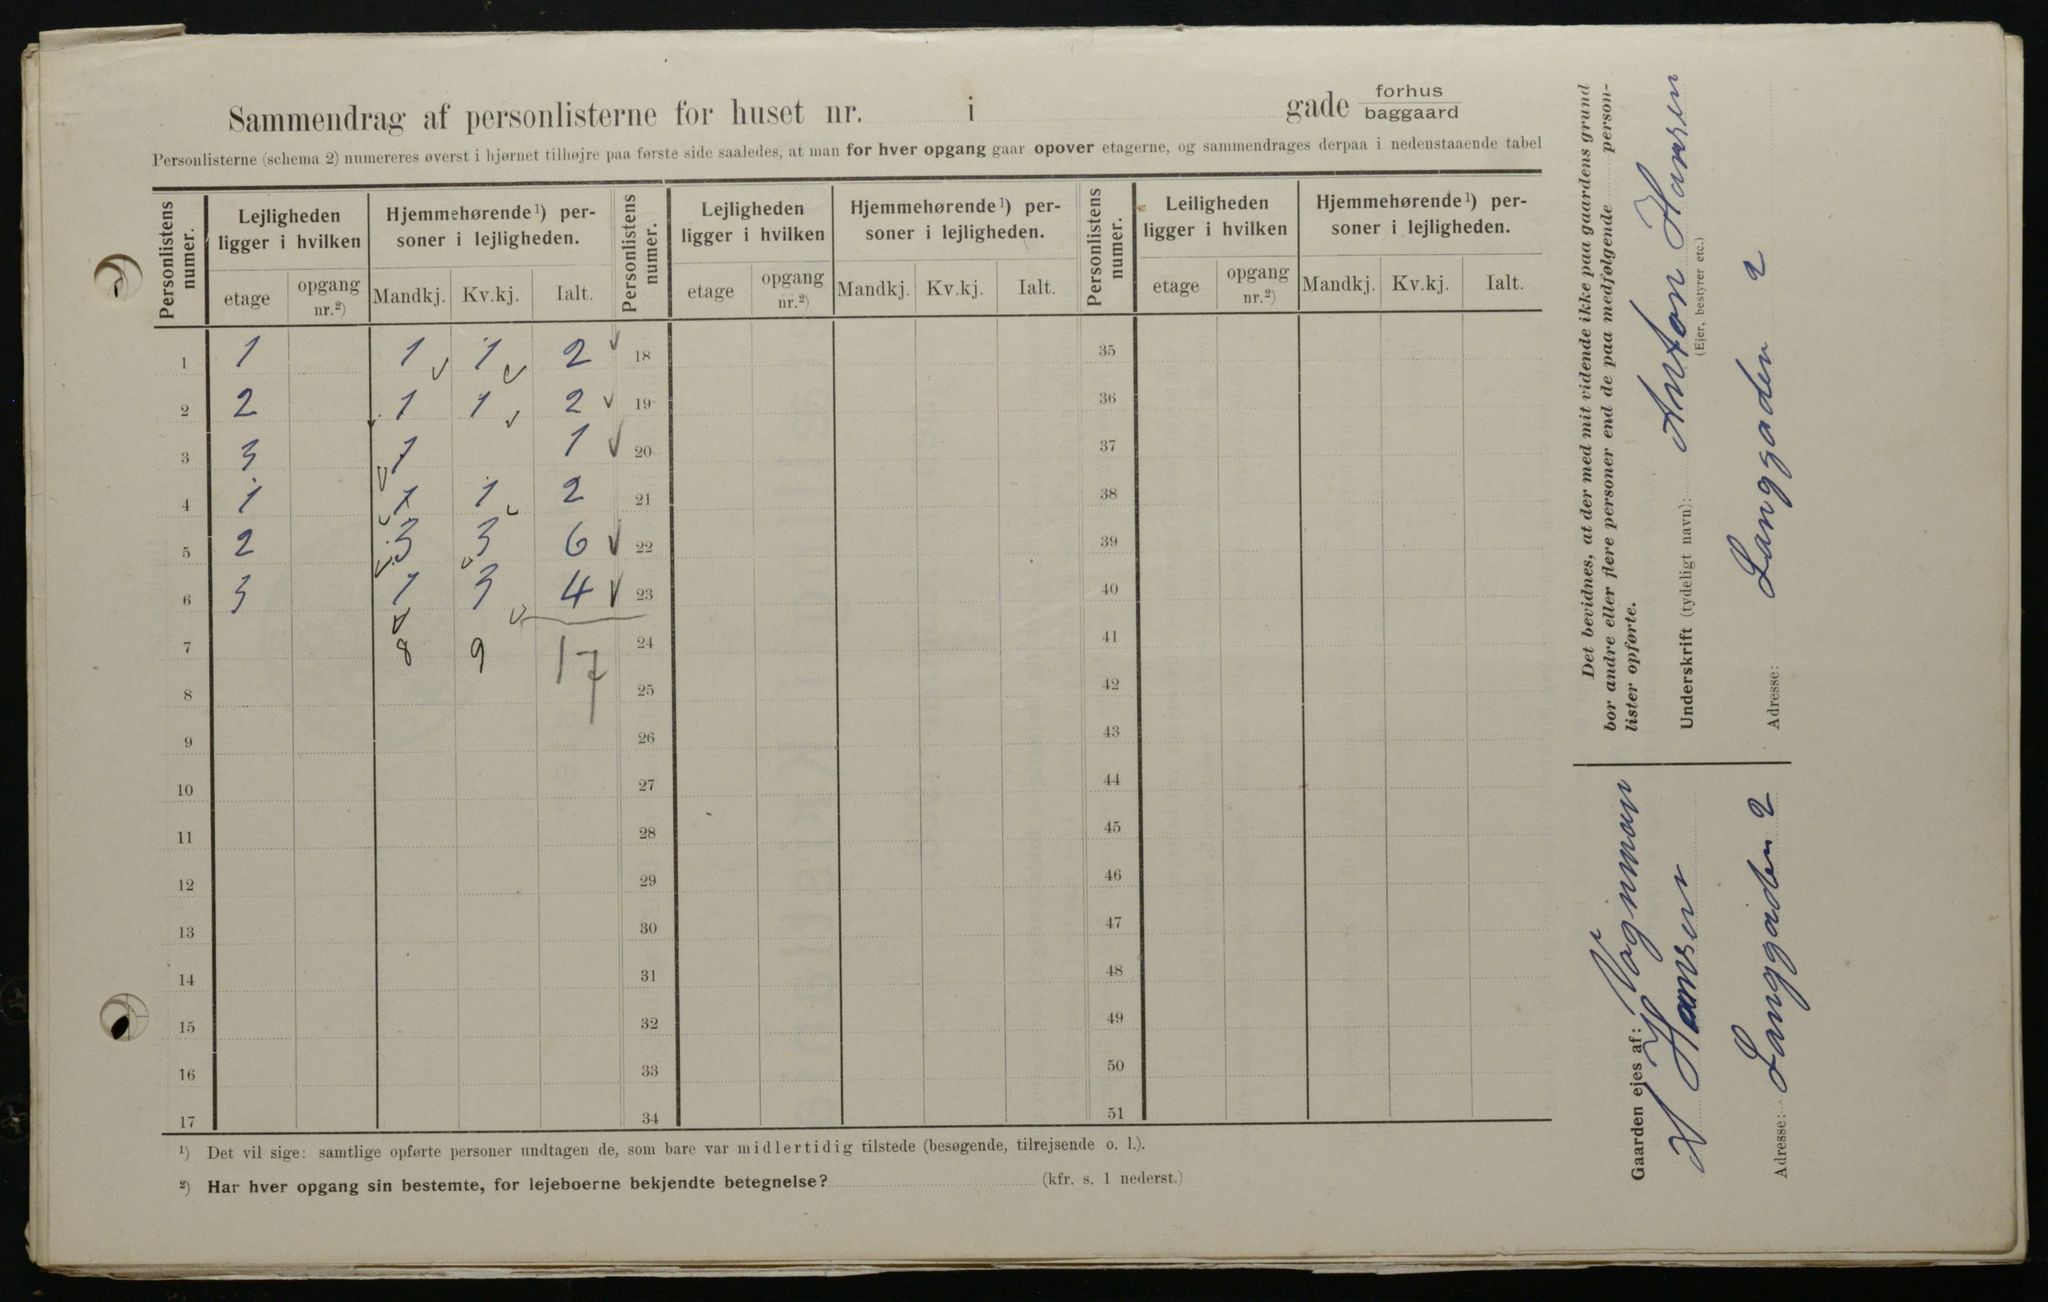 Sammendrag af personlisterne for huset nr. i gade forhus baggaard
Personlisterne (schema 2) numereres øverst i hjørnet tilhøjre paa første side saaledes, at man for hver opgang gaar opover etagerne, og sammendrages derpaa i nedenstaaende tabel
Personlistens numer. Lejligheden ligger i hvilken Hjemmehørende¹) personer i lejligheden. Personlistens numer. Lejligheden ligger i hvilken Hjemmehørende¹) personer i lejligheden. Personlistens numer. Leiligheden ligger i hvilken Hjemmehørende¹) personer i lejligheden.
etage opgang nr.²) Mandkj. Kv.kj. Ialt. etage opgang nr.²) Mandkj. Kv.kj. Ialt. etage opgang nr.²) Mandkj. Kv.kj. Ialt.
1 1 1 1 2 18 35
2 2 1 1 2 19 36
3 3 1 1 20 37
4 1 1 1 2 21 38
5 2 3 3 6 22 39
6 3 1 3 4 23 40
7 8 9 17 24 41
8 25 42
9 26 43
10 27 44
11 28 45
12 29 46
13 30 47
14 31 48
15 32 49
16 33 50
17 34 51
¹) Det vil sige: samtlige opførte personer undtagen de, som bare var midlertidig tilstede (besøgende, tilrejsende o. l.).
²) Har hver opgang sin bestemte, for lejeboerne bekjendte betegnelse? (kfr. s. 1 nederst.)
Det bevidnes, at der med mit vidende ikke paa gaardens grund
bor andre eller flere personer end de paa medfølgende person-
lister opførte.
Underskrift (tydeligt navn): Anton Hansen
(Ejer, bestyrer etc.)
Adresse: Langgaden 2
Gaarden ejes af: Vognman
H Hansen
Adresse: Langgaden 2